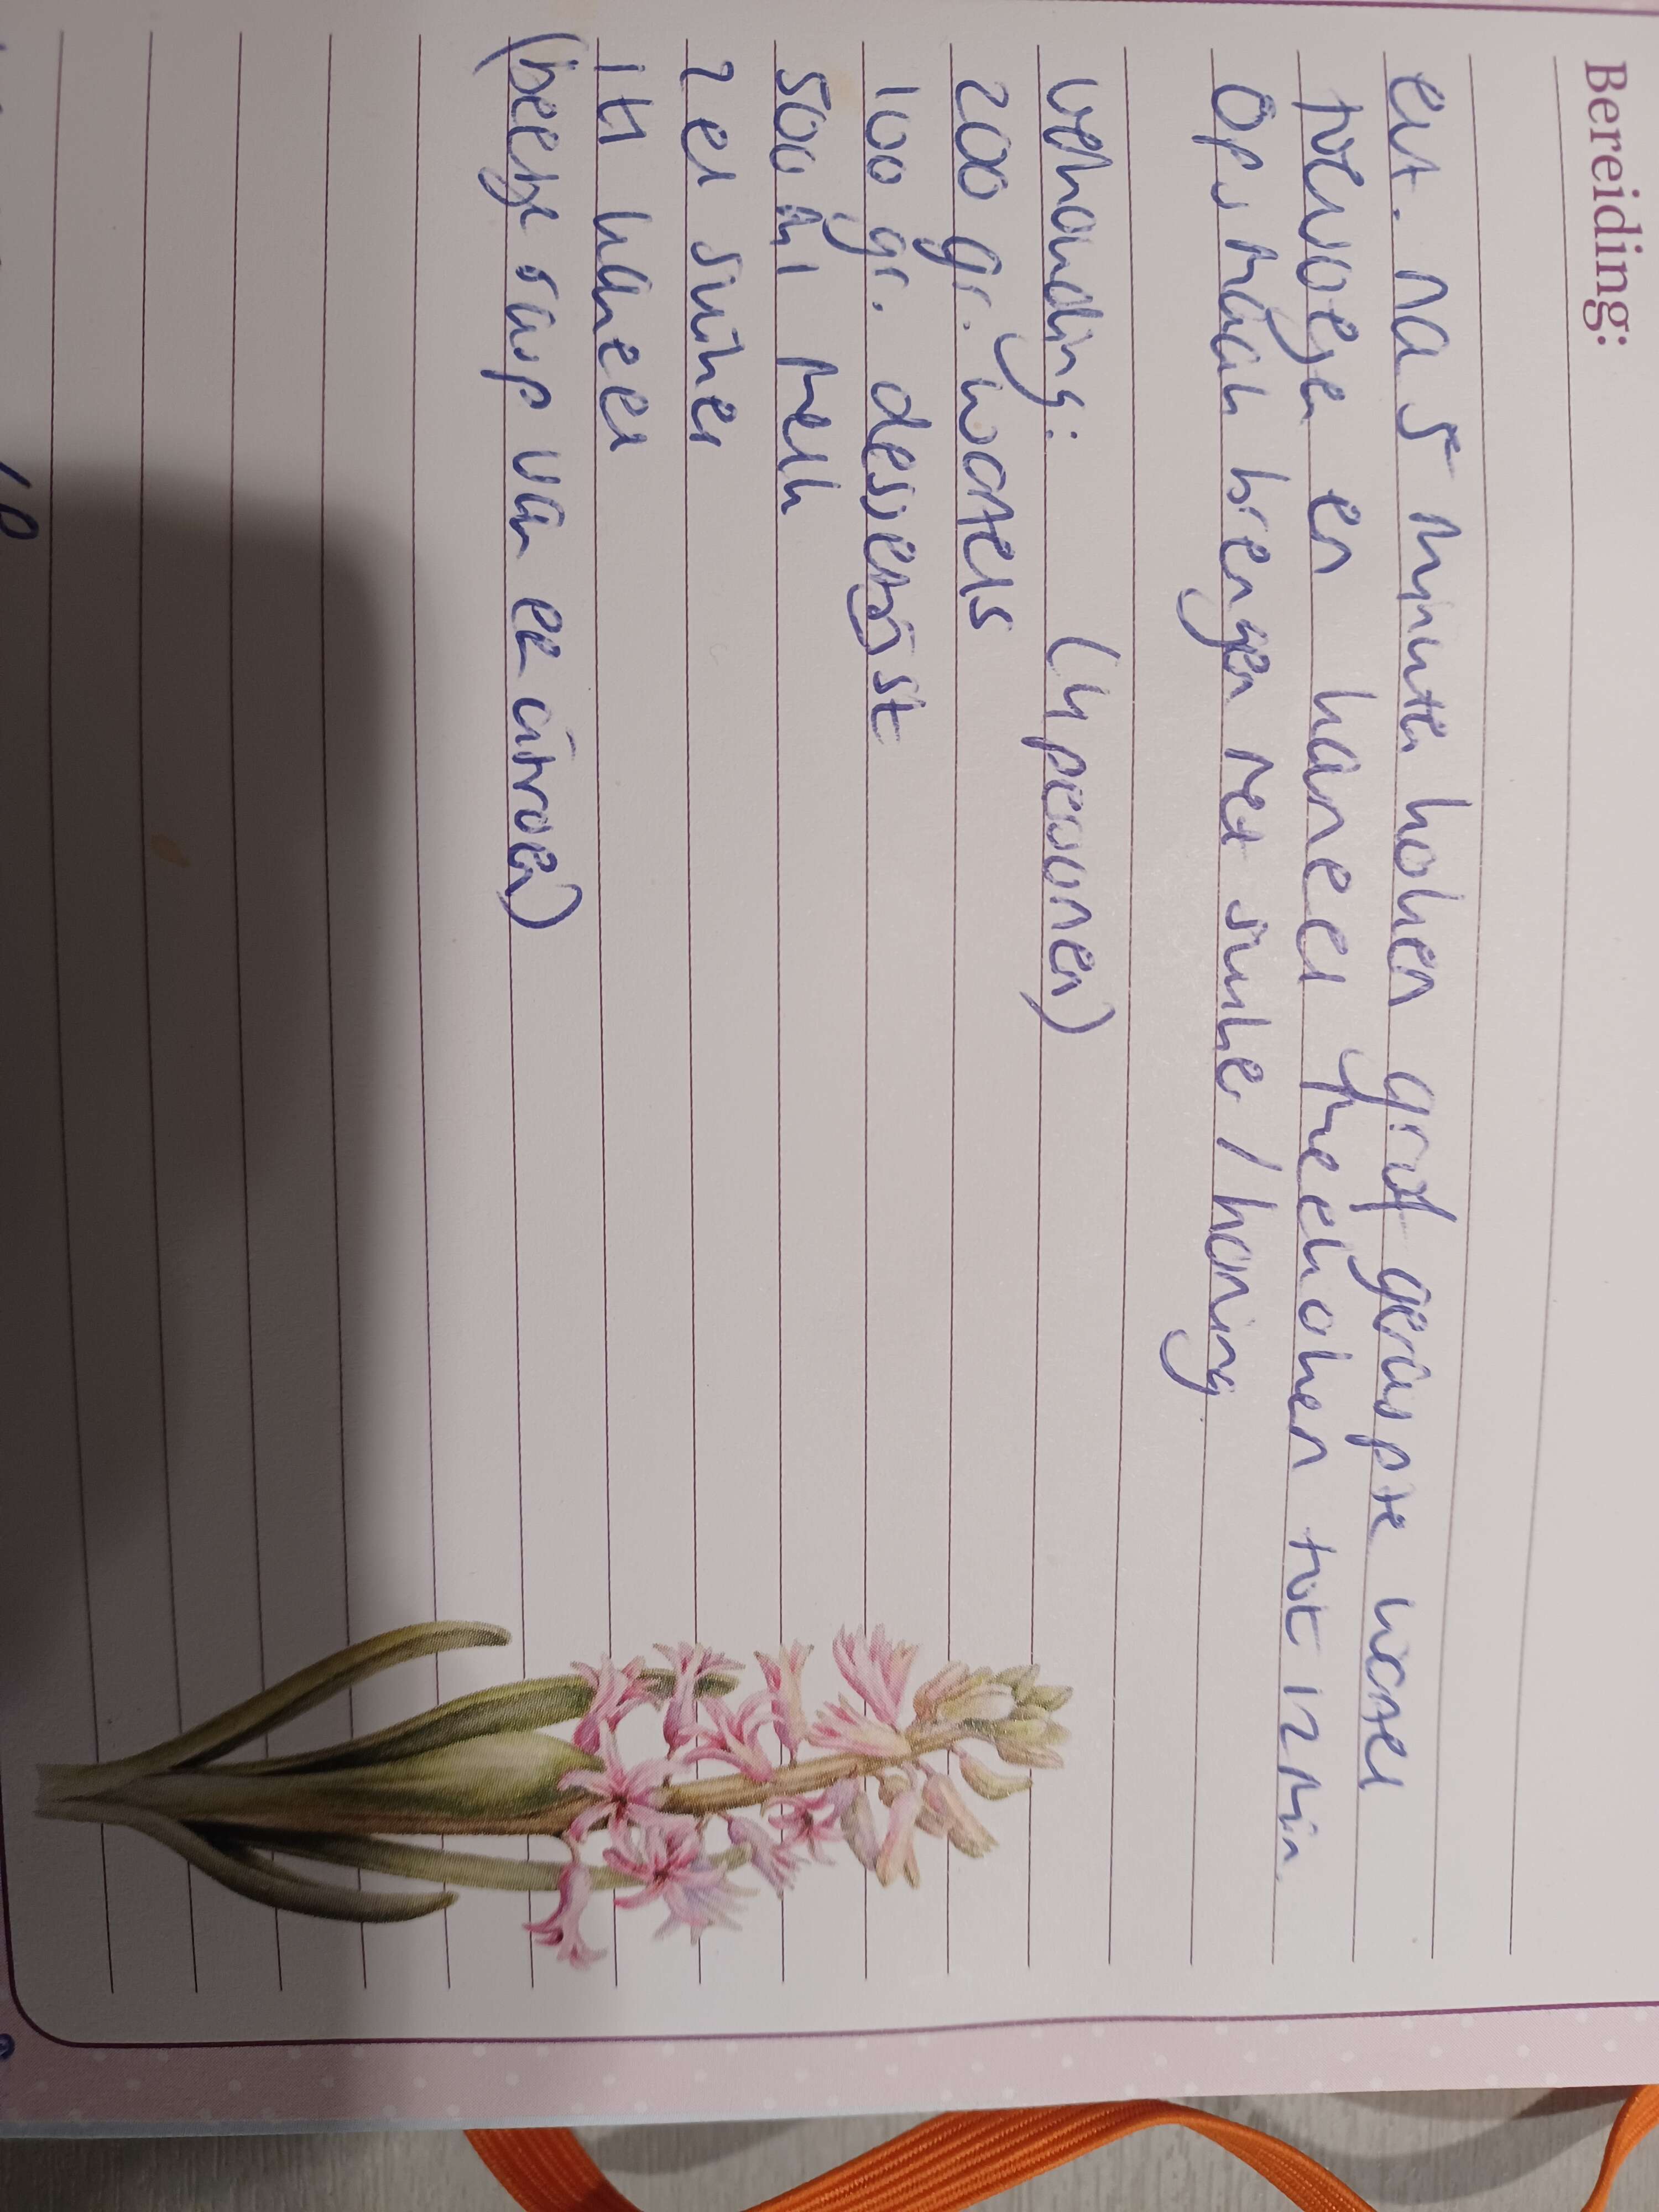 Bereiding:
evt. na 5 minuten koken grof geraspte wortel
toevoegen en kaneel meekoken tot 12 min.
Op smaak brengen met suiker / honing
verhouding: (4 personen)
200 gr. wortels
100 gr. dessertrijst
500 ml melk
2 el suiker
1 tl kaneel
(beetje sap van een citroen)